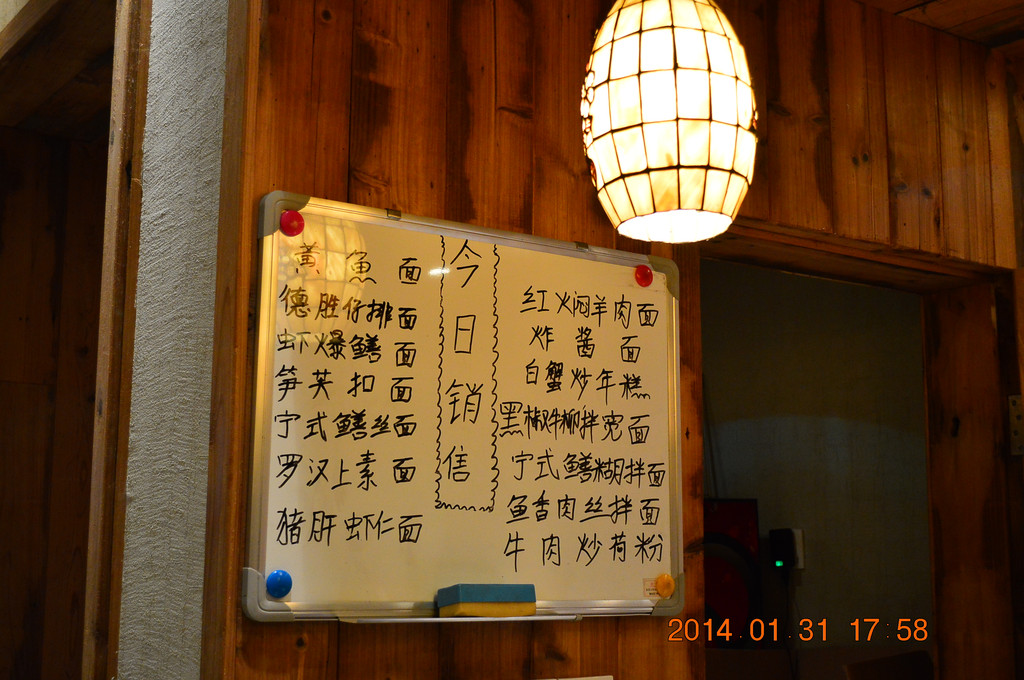 今日销信
黄鱼面
德胜仔排面
虾爆鳝面
笋英扣面
宁式鳝丝面
罗汉上素面
猪肝虾仁面
红火焖羊肉面
炸酱面
白蟹炒年糕
黑椒牛柳拌宽面
宁式鳝糊拌面
鱼香肉丝拌面
牛肉炒荷粉
2014 01 31 17:58